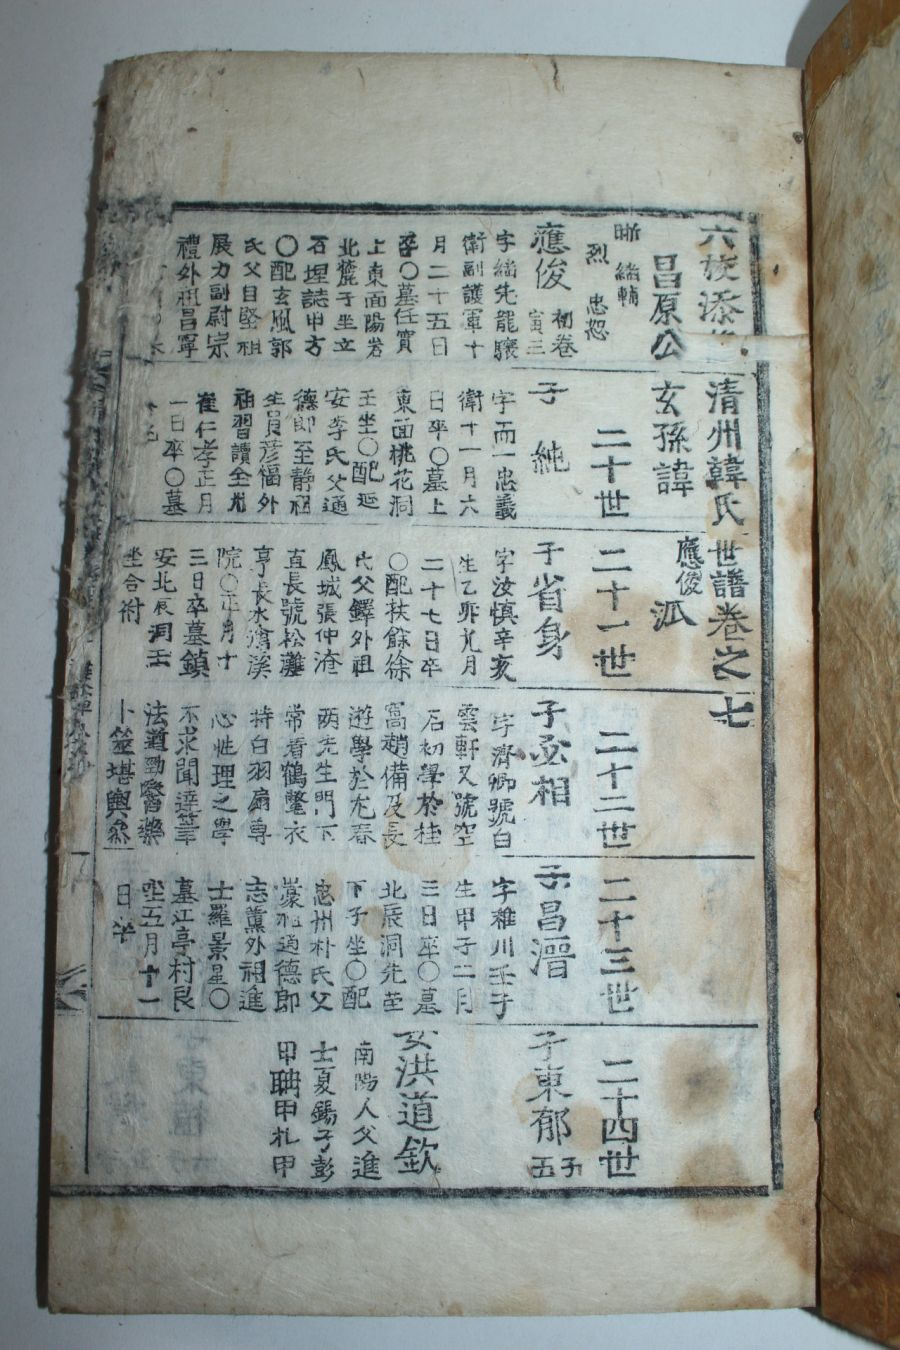 清州韓氏世譜卷之七
昌原公
玄孫諱
應俊
派
烈 忠恕
應俊
初卷
寅三
字緒先龍驤
衛副護軍十
月二十五日
卒〇墓任實
上東面陽岩
北麓子坐立
石埋誌甲方
〇配玄風郭
氏父自堅祖
展力副尉宗
禮外祖昌寧
二十世
子純
字而一忠義
衛十一月六
日卒〇墓上
東面桃花洞
壬坐〇配延
安李氏父通
德郎至静祖
生員彦福外
祖習讀全州
崔仁孝正月
一日卒〇墓
二十一世
子省身
字汝慎辛亥
生乙卯九月
二十七日卒
〇配扶餘徐
氏父鐸外祖
鳳城張仲滄
直長號松灘
亨長水
院〇正月十
三日卒墓鎮
安北辰洞壬
坐合祔
二十二世
子丞相
字濟卿號白
雲軒又號空
石初學於桂
窩趙備及長
遊學於尤春
两先生門下
常着鶴氅衣
持白羽扇尊
心性理之學
不求聞達筆
法遒勁
卜筮堪輿
二十三世
子昌溍
字稚川壬子
生甲子二月
三日卒〇墓
北辰洞先塋
下子坐〇配
忠州朴氏父
蒙祖通德郎
志薰外祖進
士羅景星〇
墓江亭村艮
坐五月十一
日卒
二十四世
子東郁
五子
女洪道欽
南陽人父進
士夏錫子彭
甲聃甲札甲